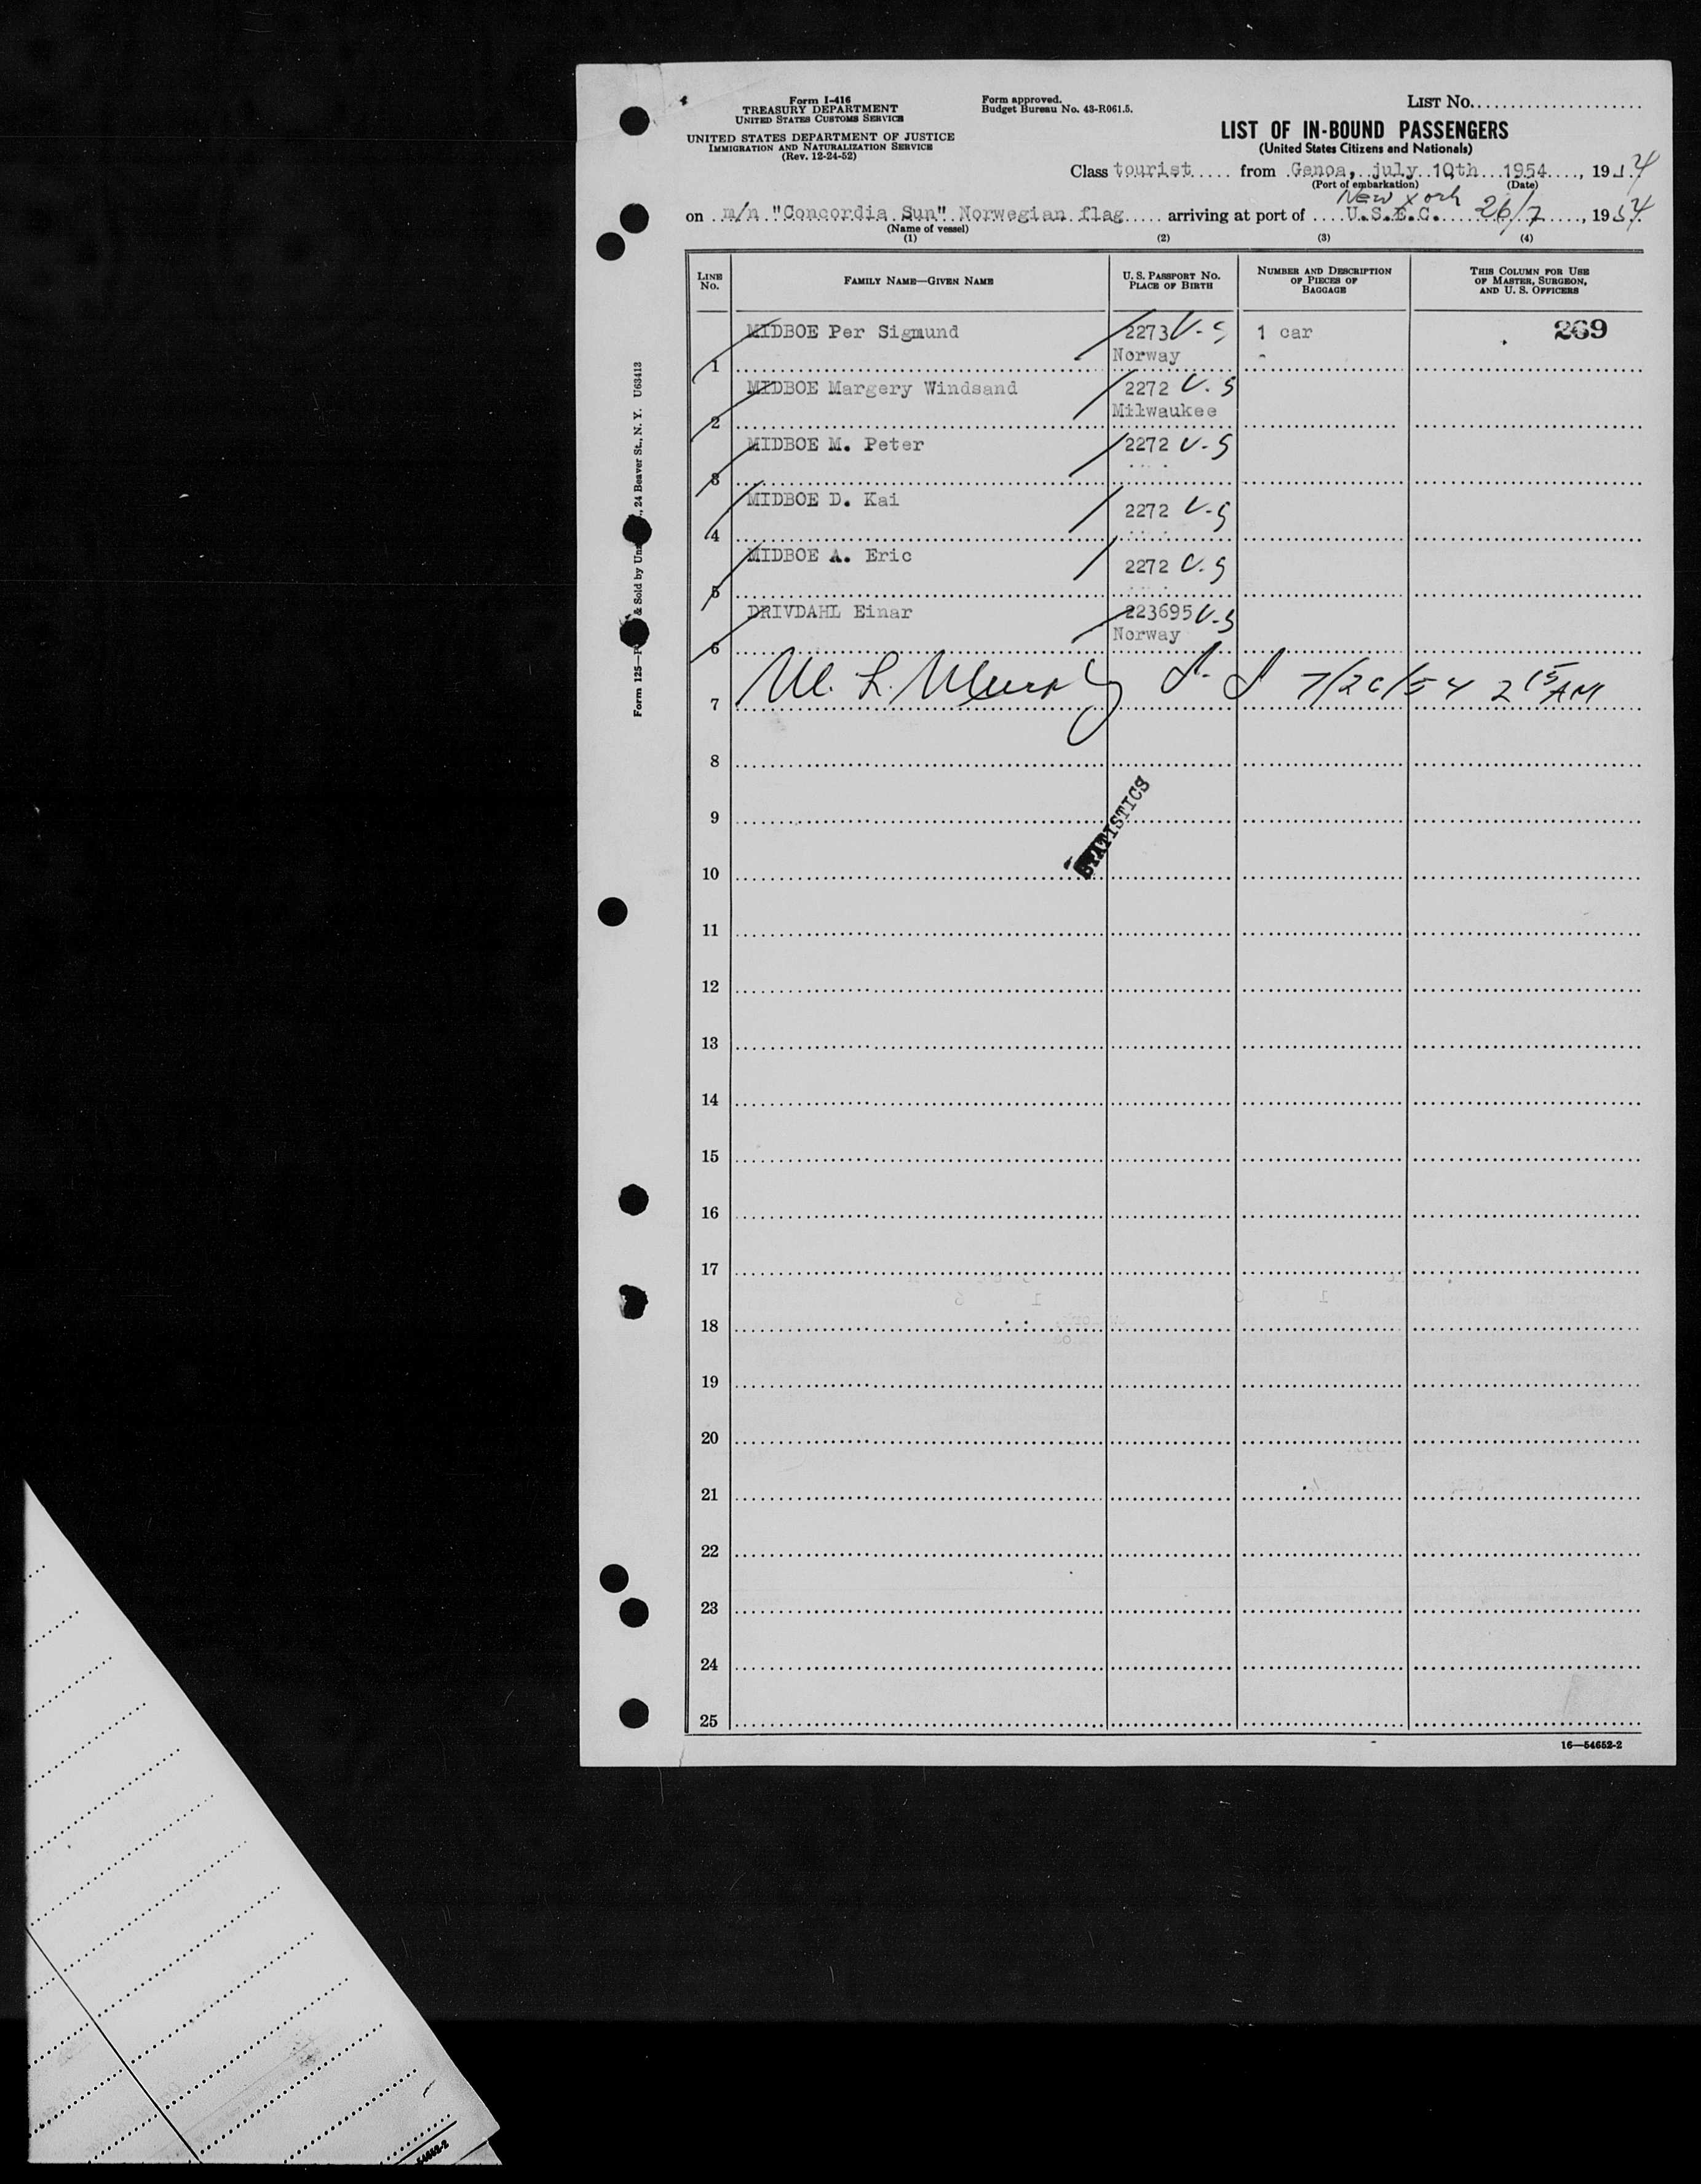 Form I-416
TREASURY DEPARTMENT
UNITED STATES CUSTOMS SERVICE
UNITED STATES DEPARTMENT OF JUSTICE
IMMIGRATION AND NATURALIZATION SERVICE
(Rev. 12-24-52)
Form approved.
Budget Bureau No. 43-R061.5.
LIST NO.
LIST OF IN-BOUND PASSENGERS
(United States Citizens and Nationals)
Class tourist from Genoa, july 10th 1954, 1954
(Port of embarkation) (Date)
New York
on m/n "Concordia Sun" Norwegian flag arriving at port of U.S.E.C. 26/7, 1954
(Name of vessel)
(1) (2) (3) (4)
LINE NO. FAMILY NAME—GIVEN NAME U. S. PASSPORT NO. PLACE OF BIRTH NUMBER AND DESCRIPTION OF PIECES OF BAGGAGE THIS COLUMN FOR USE OF MASTER, SURGEON, AND U. S. OFFICERS
MIDBOE Per Sigmund 2273 U-S 1 car 269
1 Norway
MIDBOE Margery Windsand 2272 U.S
2 Milwaukee
MIDBOE M. Peter 2272 U-S
3
MIDBOE D. Kai 2272 U-S
4
MIDBOE A. Eric 2272 U.S
5
DRIVDAHL Einar 223695 U-S
6 Norway
7 M. L. Murphy 7/26/54 2 15 AM
8
STATISTICS
9
10
11
12
13
14
15
16
17
18
19
20
21
22
23
24
25
16—54652-2
Form 125—& Sold by 24 Beaver St., N. Y. U63413
54652-2